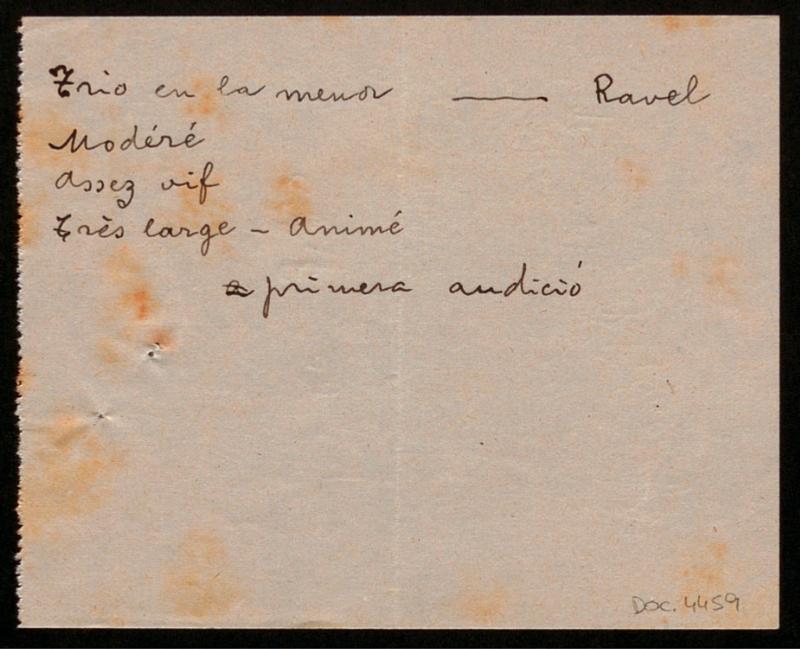 Trio en la menor — Ravel
Modéré
Assez vif
Très large - Animé
a primera audició
Doc. 4459